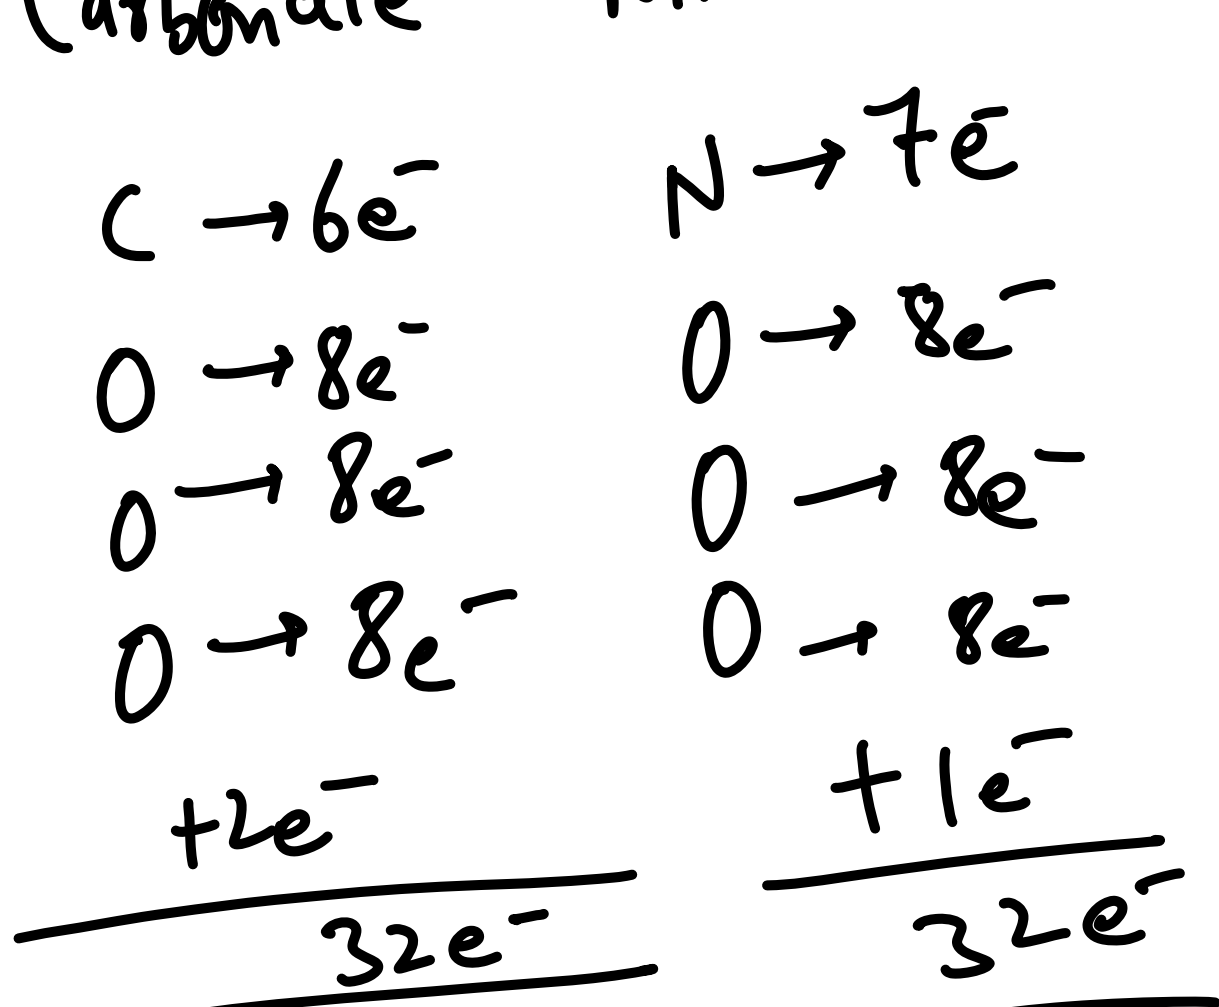 Carbonate
C → 6e⁻
O → 8e⁻
O → 8e⁻
O → 8e⁻
+2e⁻
32e⁻
N → 7e⁻
O → 8e⁻
O → 8e⁻
O → 8e⁻
+1e⁻
32e⁻